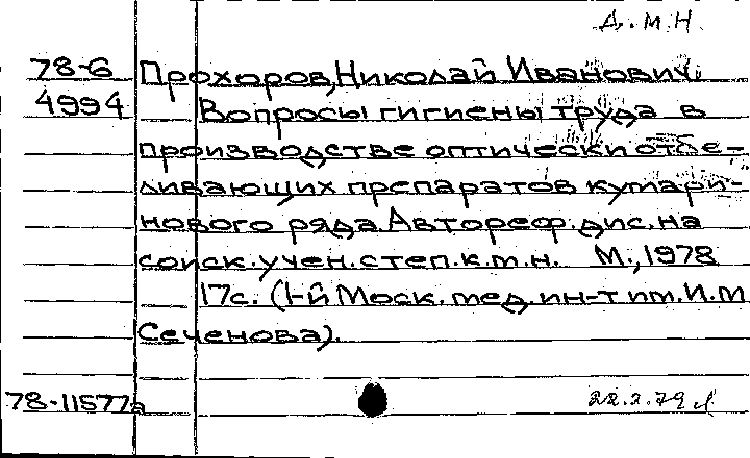 Д.М.Н.
78-6 Прохоров, Николай Иванович.
4994 Вопросы гигиены труда в
производстве оптически отбе-
ливающих препаратов кумари-
нового ряда. Автореф. дис. на
соиск. учен. степ. к.м.н. М., 1978
17с. (1-й Моск. мед. ин-т им. И.М
Сеченова).
78-11577а